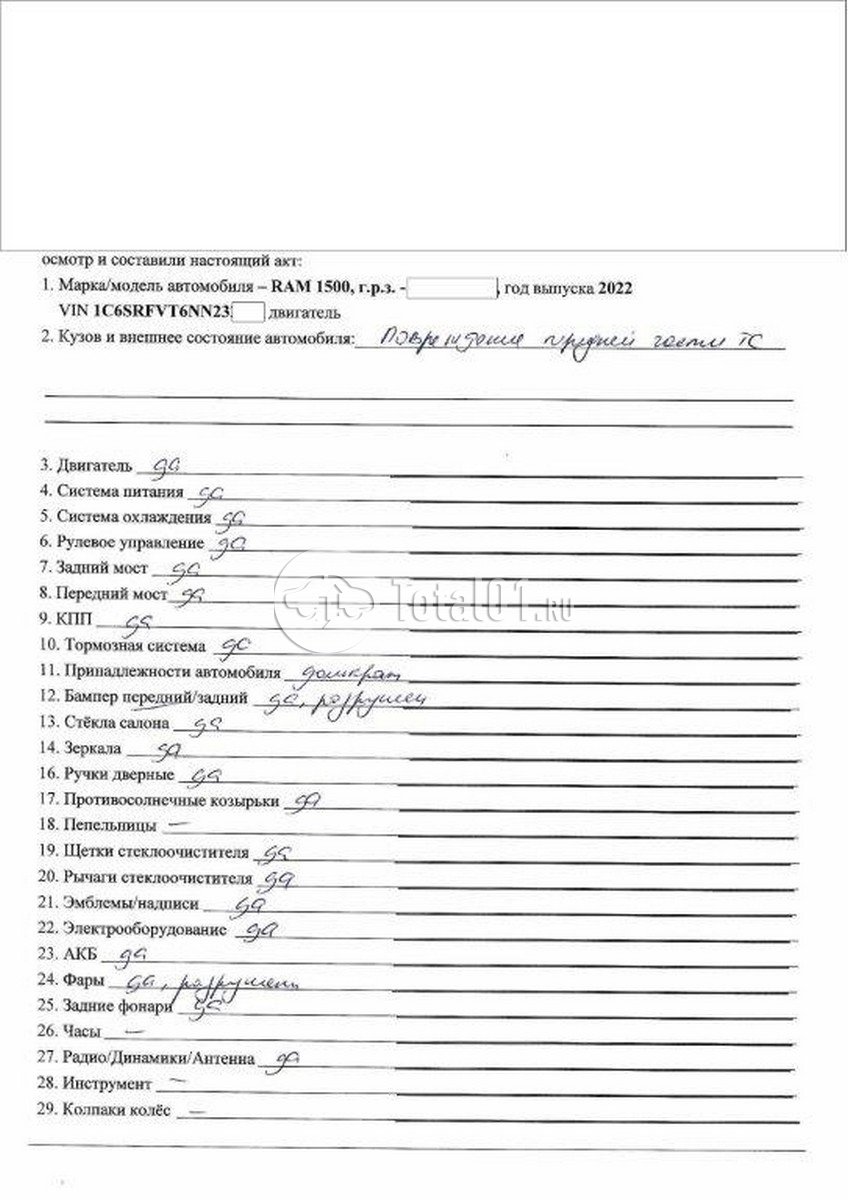 осмотр и составили настоящий акт:
1. Марка/модель автомобиля – RAM 1500, г.р.з. - , год выпуска 2022
VIN 1C6SRFVT6NN23 двигатель
2. Кузов и внешнее состояние автомобиля: Повреждение передней части ТС
3. Двигатель да
4. Система питания да
5. Система охлаждения да
6. Рулевое управление да
7. Задний мост да
8. Передний мост да
Total01.RU
9. КПП да
10. Тормозная система да
11. Принадлежности автомобиля домкрат
12. Бампер передний/задний да, разрушен
13. Стёкла салона да
14. Зеркала да
16. Ручки дверные да
17. Противосолнечные козырьки да
18. Пепельницы —
19. Щетки стеклоочистителя да
20. Рычаги стеклоочистителя да
21. Эмблемы/надписи да
22. Электрооборудование да
23. АКБ да
24. Фары да, разрушены
25. Задние фонари да
26. Часы —
27. Радио/Динамики/Антенна да
28. Инструмент —
29. Колпаки колёс —